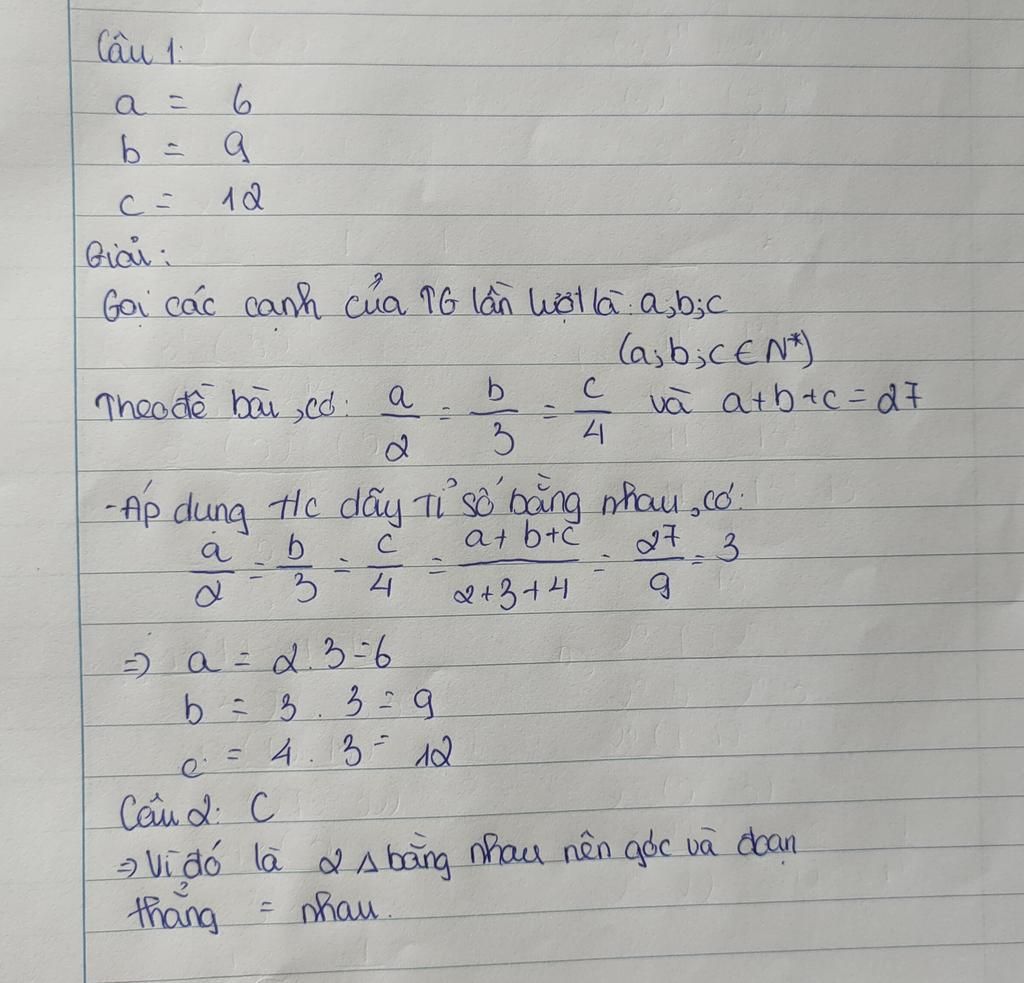 Câu 1:
a = 6
b = 9
c = 12
Giải:
Gọi các cạnh của TG lần lượt là: a;b;c
(a;b;c ∈ N*)
Theo đề bài, có: a/2 = b/3 = c/4 và a+b+c = 27
- Áp dụng t/c dãy tỉ số bằng nhau, có:
a/2 = b/3 = c/4 = a+b+c/2+3+4 = 27/9 = 3
=> a = 2.3=6
b = 3.3 = 9
c = 4.3 = 12
Câu 2: C
=> Vì đó là 2 Δ bằng nhau nên góc và đoạn
thẳng = nhau.